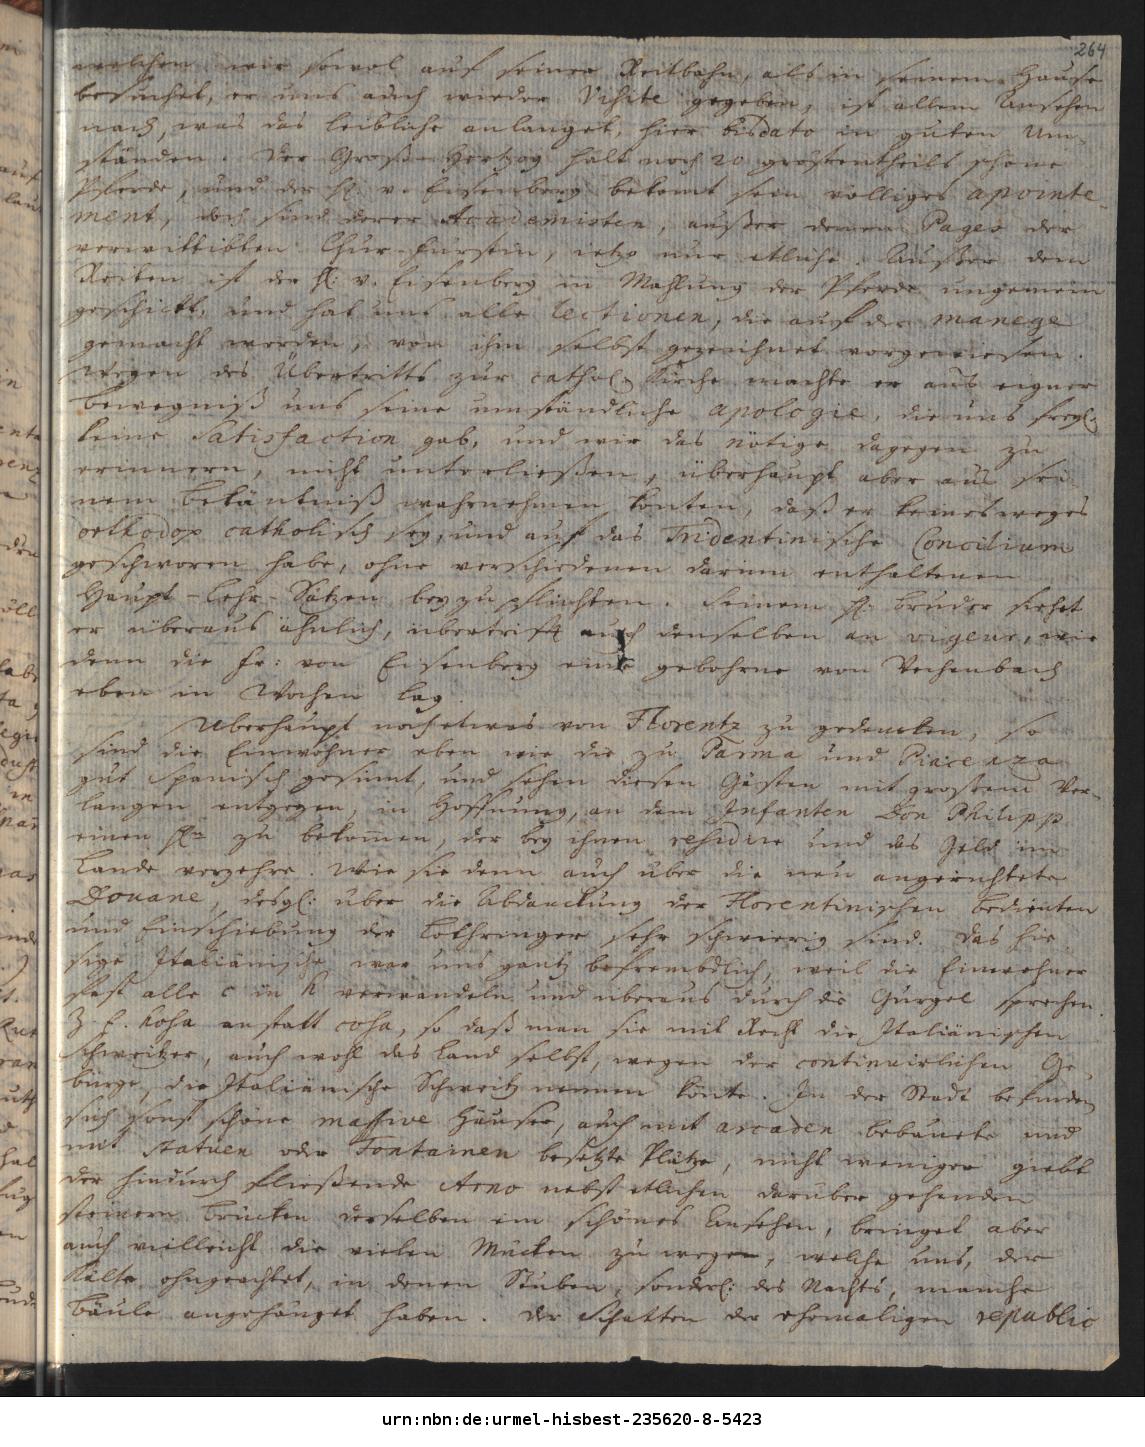 264
welchen wir sowol auf seiner Reitbahn, als in seinem Hause
besuchet, er uns auch wieder Visite gegeben, ist allem Ansehen
nach, was das leibliche anlanget, hier bisdato in guten Um-
ständen. Der Groß-Hertzog hält noch 20 grösstentheils schöne
Pferde, und der H. v. Eisenberg bekomt sein völliges apointe-
ment, doch sind derer Academisten, außer denen Pages der
verwittibten Chur-Fürstin, ietzo nur etliche. Ausser dem
Reiten ist der H. v. Eisenberg in Mahlung der Pferde ungemein
geschickt, und hat uns alle Lectionen, die auf der manege
gemacht werden, von ihm selbst gezeichnet vorgewiesen.
Wegen des Übertritts zur cathol. Kirche machte er aus eigner
Bewegniß uns seine umständliche apologie, die uns freyl.
keine Satisfaction gab, und wir das nötige dagegen zu
erinnern, nicht unterließen, überhaupt aber aus sei-
nem Bekäntniß wahrnehmen konten, daß er keinesweges
orthodox catholisch sey, und auf das Tridentinische Concilium
geschworen habe, ohne verschiedenen darinn enthaltenen
Haupt-Lehr-Sätzen beyzupflichten. Seinem H. Bruder siehet
er überaus ähnlich, übertrifft auch denselben an vigeur, wie
denn die Fr: von Eisenberg eine gebohrne von Vechenbach
eben in Wochen lag.
Uberhaupt noch etwas von Florentz zu gedencken, so
sind die Einwohner eben wie die zu Parma und Piacenza
gut Spanisch gesinnt, und sehen diesen Gästen mit grossem Ver-
langen entgegen, in Hoffnung, an dem Infanten Don Philipp
einen Hn zu bekomen, der bey ihnen residire und das Geld im
Lande verzehre. Wie sie denn auch über die neu angerichtete
Douane, desgl: über die Abdanckung der Florentinischen Bedienten
und Einschiebung der Lothringer sehr schwierig sind. Das hie-
sige Italiänische war uns gantz befrembdlich, weil die Einwohner
fast alle c in h verwandeln und überaus durch die Gurgel sprechen.
Z. E. hosa anstatt cosa, so daß man sie mit Recht die Italiänischen
Schweitzer, auch wohl das Land selbst, wegen der continuirlichen Ge-
bürge, die Italiänische Schweitz nennen könte. In der Stadt befinden
sich sonst schöne massive Häuser, auch mit arcaden bebauete und
mit statuen oder Fontainen besetzte Plätze, nicht weniger giebt
der hindurch fließende Arno nebst etlichen darüber gehenden
steinern Brücken derselben ein schönes Ansehen, bringet aber
auch vielleicht die vielen Mücken zu wegen, welche uns, der
Kälte ohngeachtet, in denen Stuben, sonderl: des Nachts, manche
Bäule angehänget haben. Der Schatten der ehemaligen republic
urn:nbn:de:urmel-hisbest-235620-8-5423